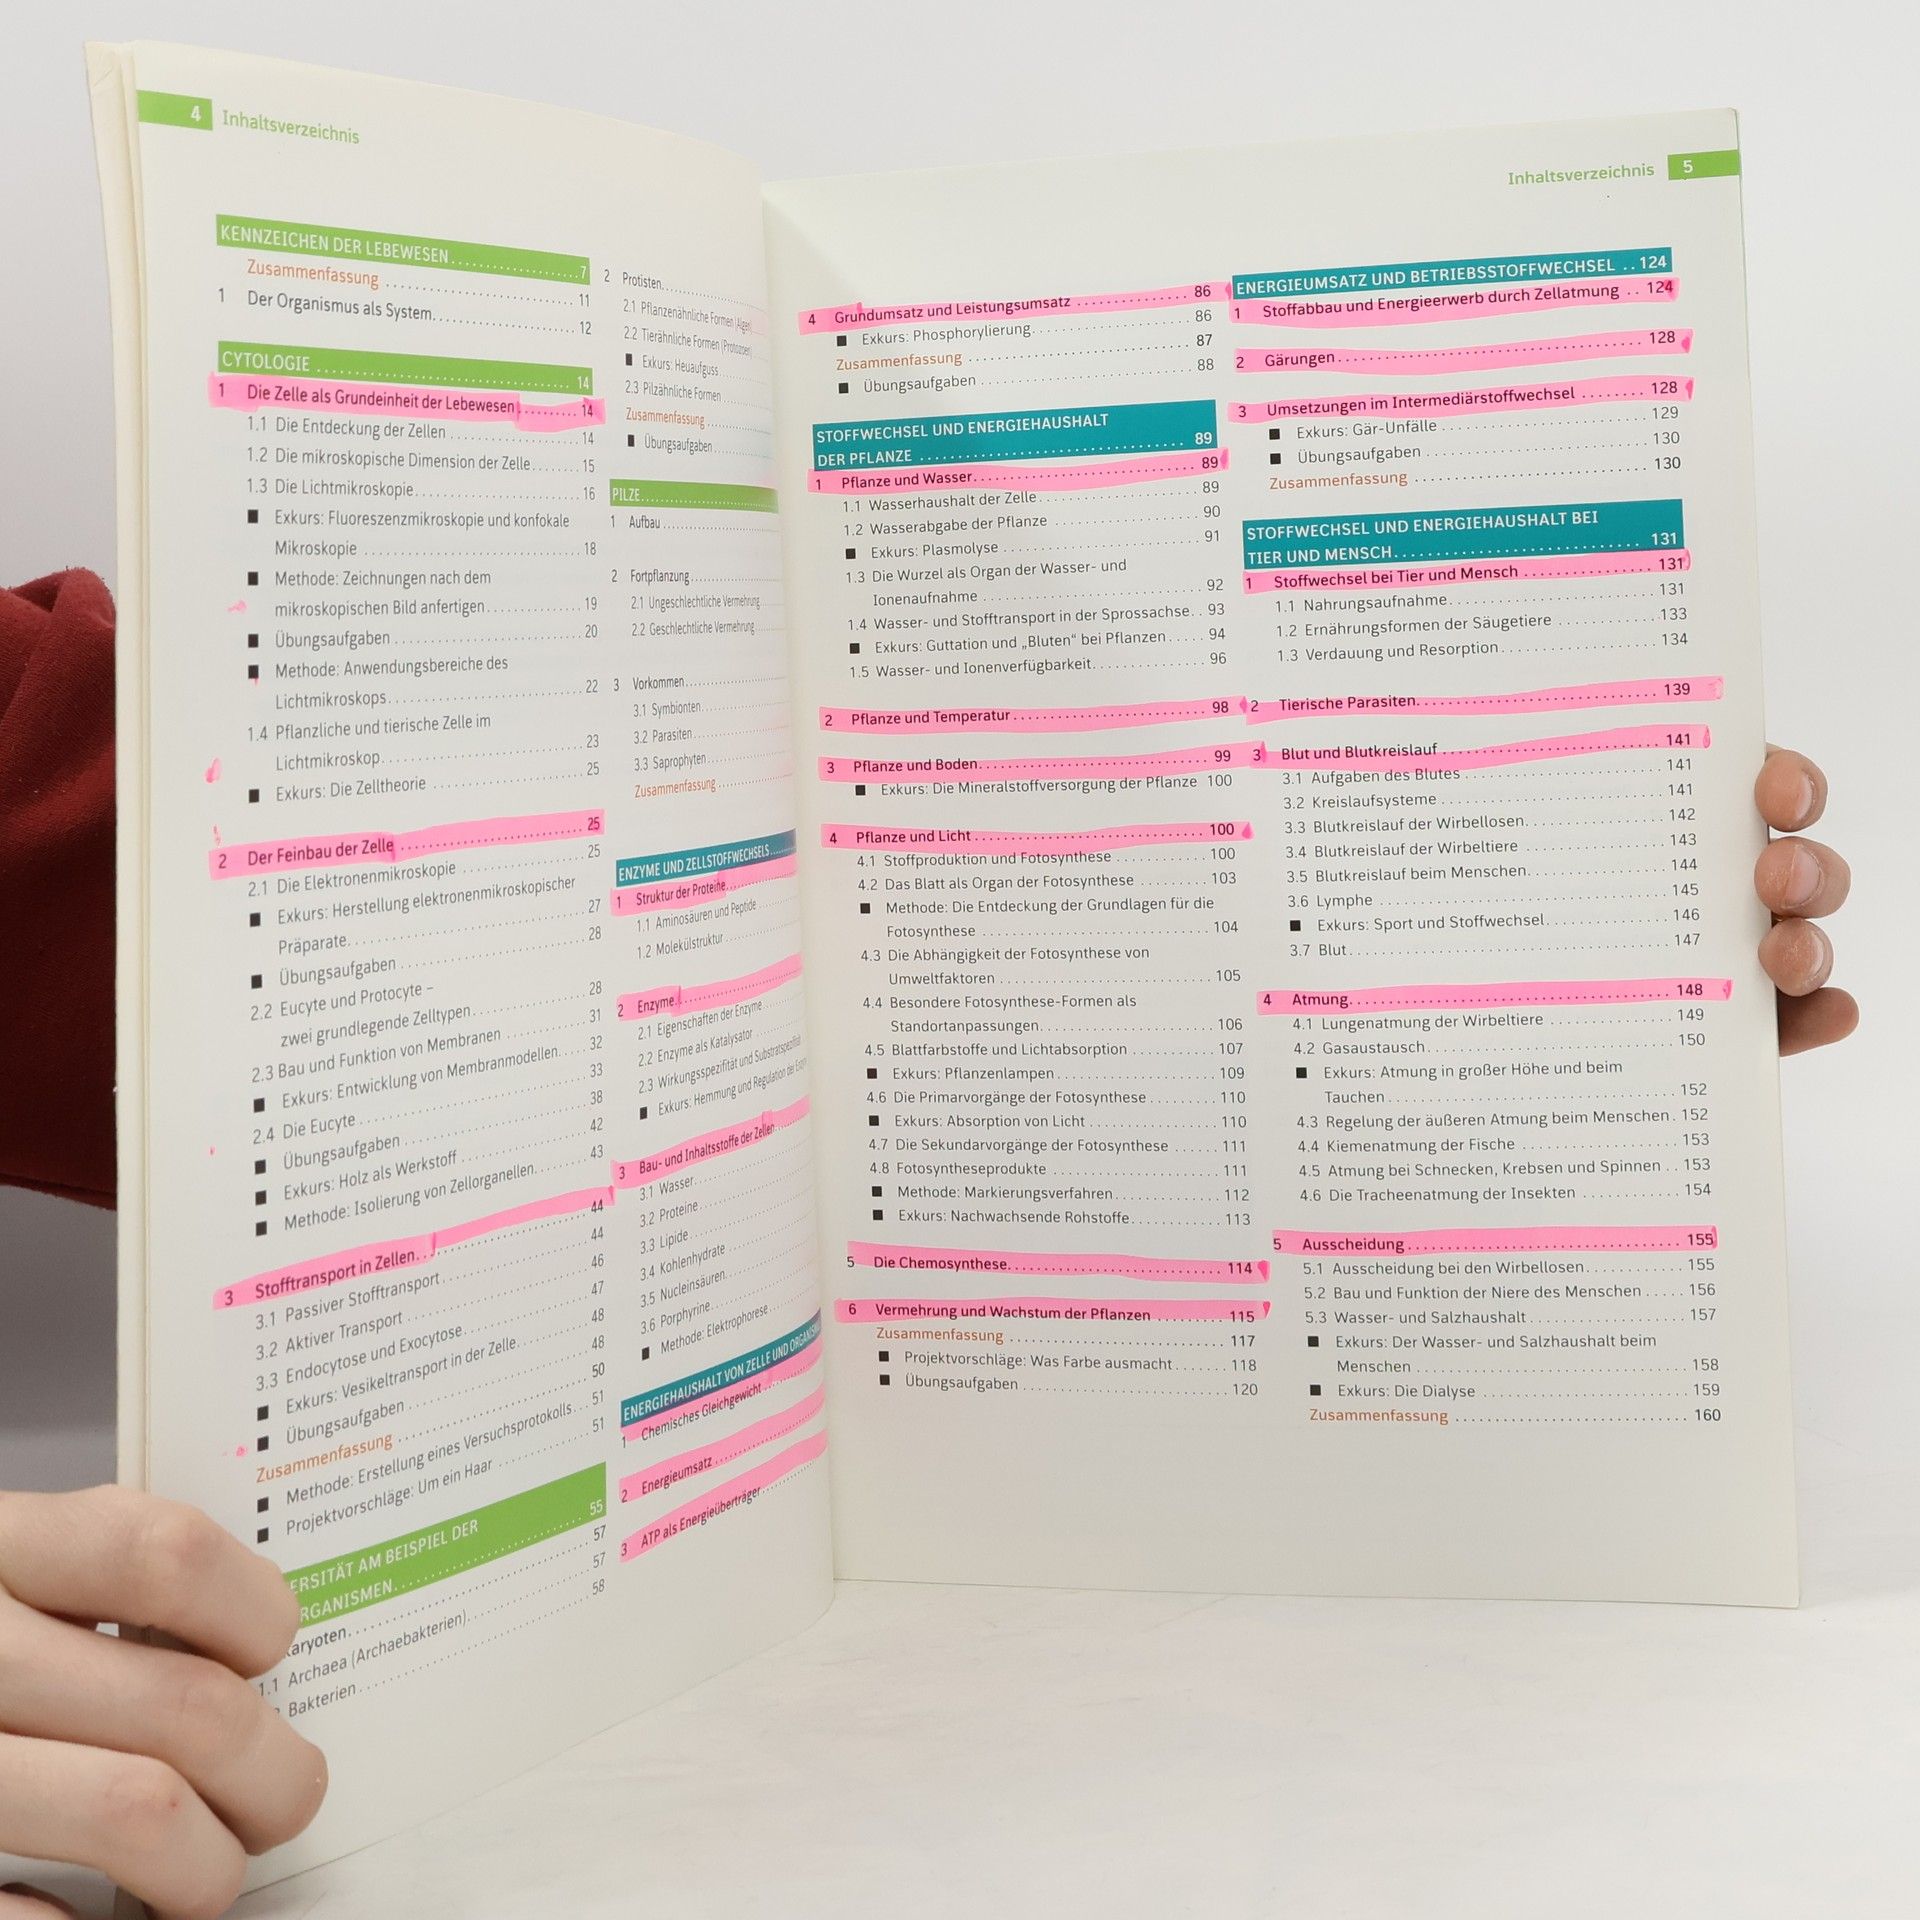 4 Inhaltsverzeichnis
KENNZEICHEN DER LEBEWESEN 7
Zusammenfassung 11
1 Der Organismus als System 12
CYTOLOGIE 14
1 Die Zelle als Grundeinheit der Lebewesen 14
1.1 Die Entdeckung der Zellen 14
1.2 Die mikroskopische Dimension der Zelle 15
1.3 Die Lichtmikroskopie 16
■ Exkurs: Fluoreszenzmikroskopie und konfokale
Mikroskopie 18
■ Methode: Zeichnungen nach dem
mikroskopischen Bild anfertigen 19
■ Übungsaufgaben 20
■ Methode: Anwendungsbereiche des
Lichtmikroskops 22
1.4 Pflanzliche und tierische Zelle im
Lichtmikroskop 23
■ Exkurs: Die Zelltheorie 25
2 Der Feinbau der Zelle 25
2.1 Die Elektronenmikroskopie 25
■ Exkurs: Herstellung elektronenmikroskopischer
Präparate 27
■ Übungsaufgaben 28
2.2 Eucyte und Protocyte –
zwei grundlegende Zelltypen 28
2.3 Bau und Funktion von Membranen 31
■ Exkurs: Entwicklung von Membranmodellen 32
2.4 Die Eucyte 33
■ Übungsaufgaben 38
■ Exkurs: Holz als Werkstoff 42
■ Methode: Isolierung von Zellorganellen 43
3 Stofftransport in Zellen 44
3.1 Passiver Stofftransport 44
3.2 Aktiver Transport 46
3.3 Endocytose und Exocytose 47
■ Exkurs: Vesikeltransport in der Zelle 48
■ Übungsaufgaben 48
Zusammenfassung 50
■ Methode: Erstellung eines Versuchsprotokolls 51
■ Projektvorschläge: Um ein Haar 51
ERSITÄT AM BEISPIEL DER
RGANISMEN 55
aryoten 57
1.1 Archaea (Archaebakterien) 57
Bakterien 58
2 Protisten
2.1 Pflanzenähnliche Formen (Algen)
2.2 Tierähnliche Formen (Protozoen)
■ Exkurs: Heuaufguss
2.3 Pilzähnliche Formen
Zusammenfassung
■ Übungsaufgaben
PILZE
1 Aufbau
2 Fortpflanzung
2.1 Ungeschlechtliche Vermehrung
2.2 Geschlechtliche Vermehrung
3 Vorkommen
3.1 Symbionten
3.2 Parasiten
3.3 Saprophyten
Zusammenfassung
ENZYME UND ZELLSTOFFWECHSELS
1 Struktur der Proteine
1.1 Aminosäuren und Peptide
1.2 Molekülstruktur
2 Enzyme
2.1 Eigenschaften der Enzyme
2.2 Enzyme als Katalysator
2.3 Wirkungsspezifität und Substratspezifität
■ Exkurs: Hemmung und Regulation der
3 Bau- und Inhaltsstoffe der Zellen
3.1 Wasser
3.2 Proteine
3.3 Lipide
3.4 Kohlenhydrate
3.5 Nucleinsäuren
3.6 Porphyrine
■ Methode: Elektrophorese
ENERGIEHAUSHALT VON ZELLE UND
1 Chemisches Gleichgewicht
2 Energieumsatz
3 ATP als Energieüberträger
Inhaltsverzeichnis 5
4 Grundumsatz und Leistungsumsatz 86
■ Exkurs: Phosphorylierung 86
Zusammenfassung 87
■ Übungsaufgaben 88
STOFFWECHSEL UND ENERGIEHAUSHALT
DER PFLANZE 89
1 Pflanze und Wasser 89
1.1 Wasserhaushalt der Zelle 89
1.2 Wasserabgabe der Pflanze 90
■ Exkurs: Plasmolyse 91
1.3 Die Wurzel als Organ der Wasser- und
Ionenaufnahme 92
1.4 Wasser- und Stofftransport in der Sprossachse 93
■ Exkurs: Guttation und „Bluten“ bei Pflanzen 94
1.5 Wasser- und Ionenverfügbarkeit 96
2 Pflanze und Temperatur 98
3 Pflanze und Boden 99
■ Exkurs: Die Mineralstoffversorgung der Pflanze 100
4 Pflanze und Licht 100
4.1 Stoffproduktion und Fotosynthese 100
4.2 Das Blatt als Organ der Fotosynthese 103
■ Methode: Die Entdeckung der Grundlagen für die
Fotosynthese 104
4.3 Die Abhängigkeit der Fotosynthese von
Umweltfaktoren 105
4.4 Besondere Fotosynthese-Formen als
Standortanpassungen 106
4.5 Blattfarbstoffe und Lichtabsorption 107
■ Exkurs: Pflanzenlampen 109
4.6 Die Primarvorgänge der Fotosynthese 110
■ Exkurs: Absorption von Licht 110
4.7 Die Sekundarvorgänge der Fotosynthese 111
4.8 Fotosyntheseprodukte 111
■ Methode: Markierungsverfahren 112
■ Exkurs: Nachwachsende Rohstoffe 113
5 Die Chemosynthese 114
6 Vermehrung und Wachstum der Pflanzen 115
Zusammenfassung 117
■ Projektvorschläge: Was Farbe ausmacht 118
■ Übungsaufgaben 120
ENERGIEUMSATZ UND BETRIEBSSTOFFWECHSEL 124
1 Stoffabbau und Energieerwerb durch Zellatmung 124
2 Gärungen 128
3 Umsetzungen im Intermediärstoffwechsel 128
■ Exkurs: Gär-Unfälle 129
■ Übungsaufgaben 130
Zusammenfassung 130
STOFFWECHSEL UND ENERGIEHAUSHALT BEI
TIER UND MENSCH 131
1 Stoffwechsel bei Tier und Mensch 131
1.1 Nahrungsaufnahme 131
1.2 Ernährungsformen der Säugetiere 133
1.3 Verdauung und Resorption 134
2 Tierische Parasiten 139
3 Blut und Blutkreislauf 141
3.1 Aufgaben des Blutes 141
3.2 Kreislaufsysteme 141
3.3 Blutkreislauf der Wirbellosen 142
3.4 Blutkreislauf der Wirbeltiere 143
3.5 Blutkreislauf beim Menschen 144
3.6 Lymphe 145
■ Exkurs: Sport und Stoffwechsel 146
3.7 Blut 147
4 Atmung 148
4.1 Lungenatmung der Wirbeltiere 149
4.2 Gasaustausch 150
■ Exkurs: Atmung in großer Höhe und beim
Tauchen 152
4.3 Regelung der äußeren Atmung beim Menschen 152
4.4 Kiemenatmung der Fische 153
4.5 Atmung bei Schnecken, Krebsen und Spinnen 153
4.6 Die Tracheenatmung der Insekten 154
5 Ausscheidung 155
5.1 Ausscheidung bei den Wirbellosen 155
5.2 Bau und Funktion der Niere des Menschen 156
5.3 Wasser- und Salzhaushalt 157
■ Exkurs: Der Wasser- und Salzhaushalt beim
Menschen 158
■ Exkurs: Die Dialyse 159
Zusammenfassung 160